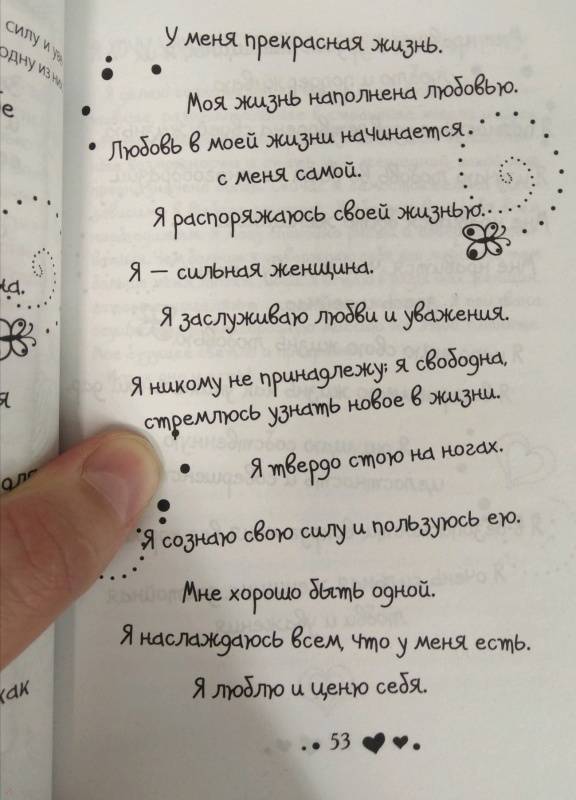 силу и
одну из
У меня прекрасная жизнь.
Моя жизнь наполнена любовью.
Любовь в моей жизни начинается
с меня самой.
Я распоряжаюсь своей жизнью.
Я — сильная женщина.
Я заслуживаю любви и уважения.
Я никому не принадлежу; я свободна,
стремлюсь узнать новое в жизни.
Я твердо стою на ногах.
Я сознаю свою силу и пользуюсь ею.
Мне хорошо быть одной.
Я наслаждаюсь всем, что у меня есть.
Я люблю и ценю себя.
53